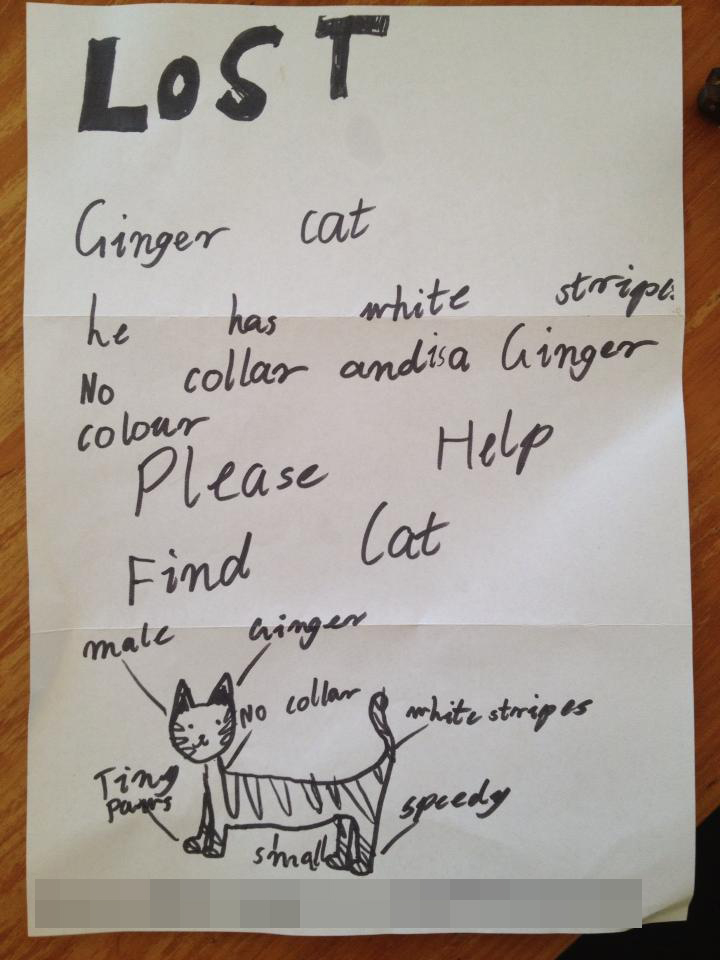 LOST
Ginger cat
he has white stripes
No collar and is a Ginger
colour
Please Help
Find Cat
male Ginger
No collar
white stripes
Tiny
paws
speedy
small